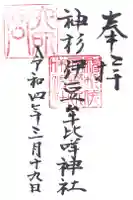 奉拝
神杉伊豆牟比咩神社
令和四年三月十九日